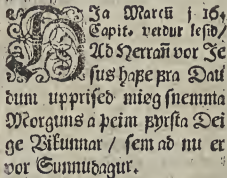 HJa Marcũ j 16.
Capit. verdur lesid/
Ad Herrañ vor Je
sus hafe fra Dau
dum upprised miøg snemma
Morguns a þeim fyrsta Dei
ge Vikunnar / sem ad nu er
vor Sunnudagur.